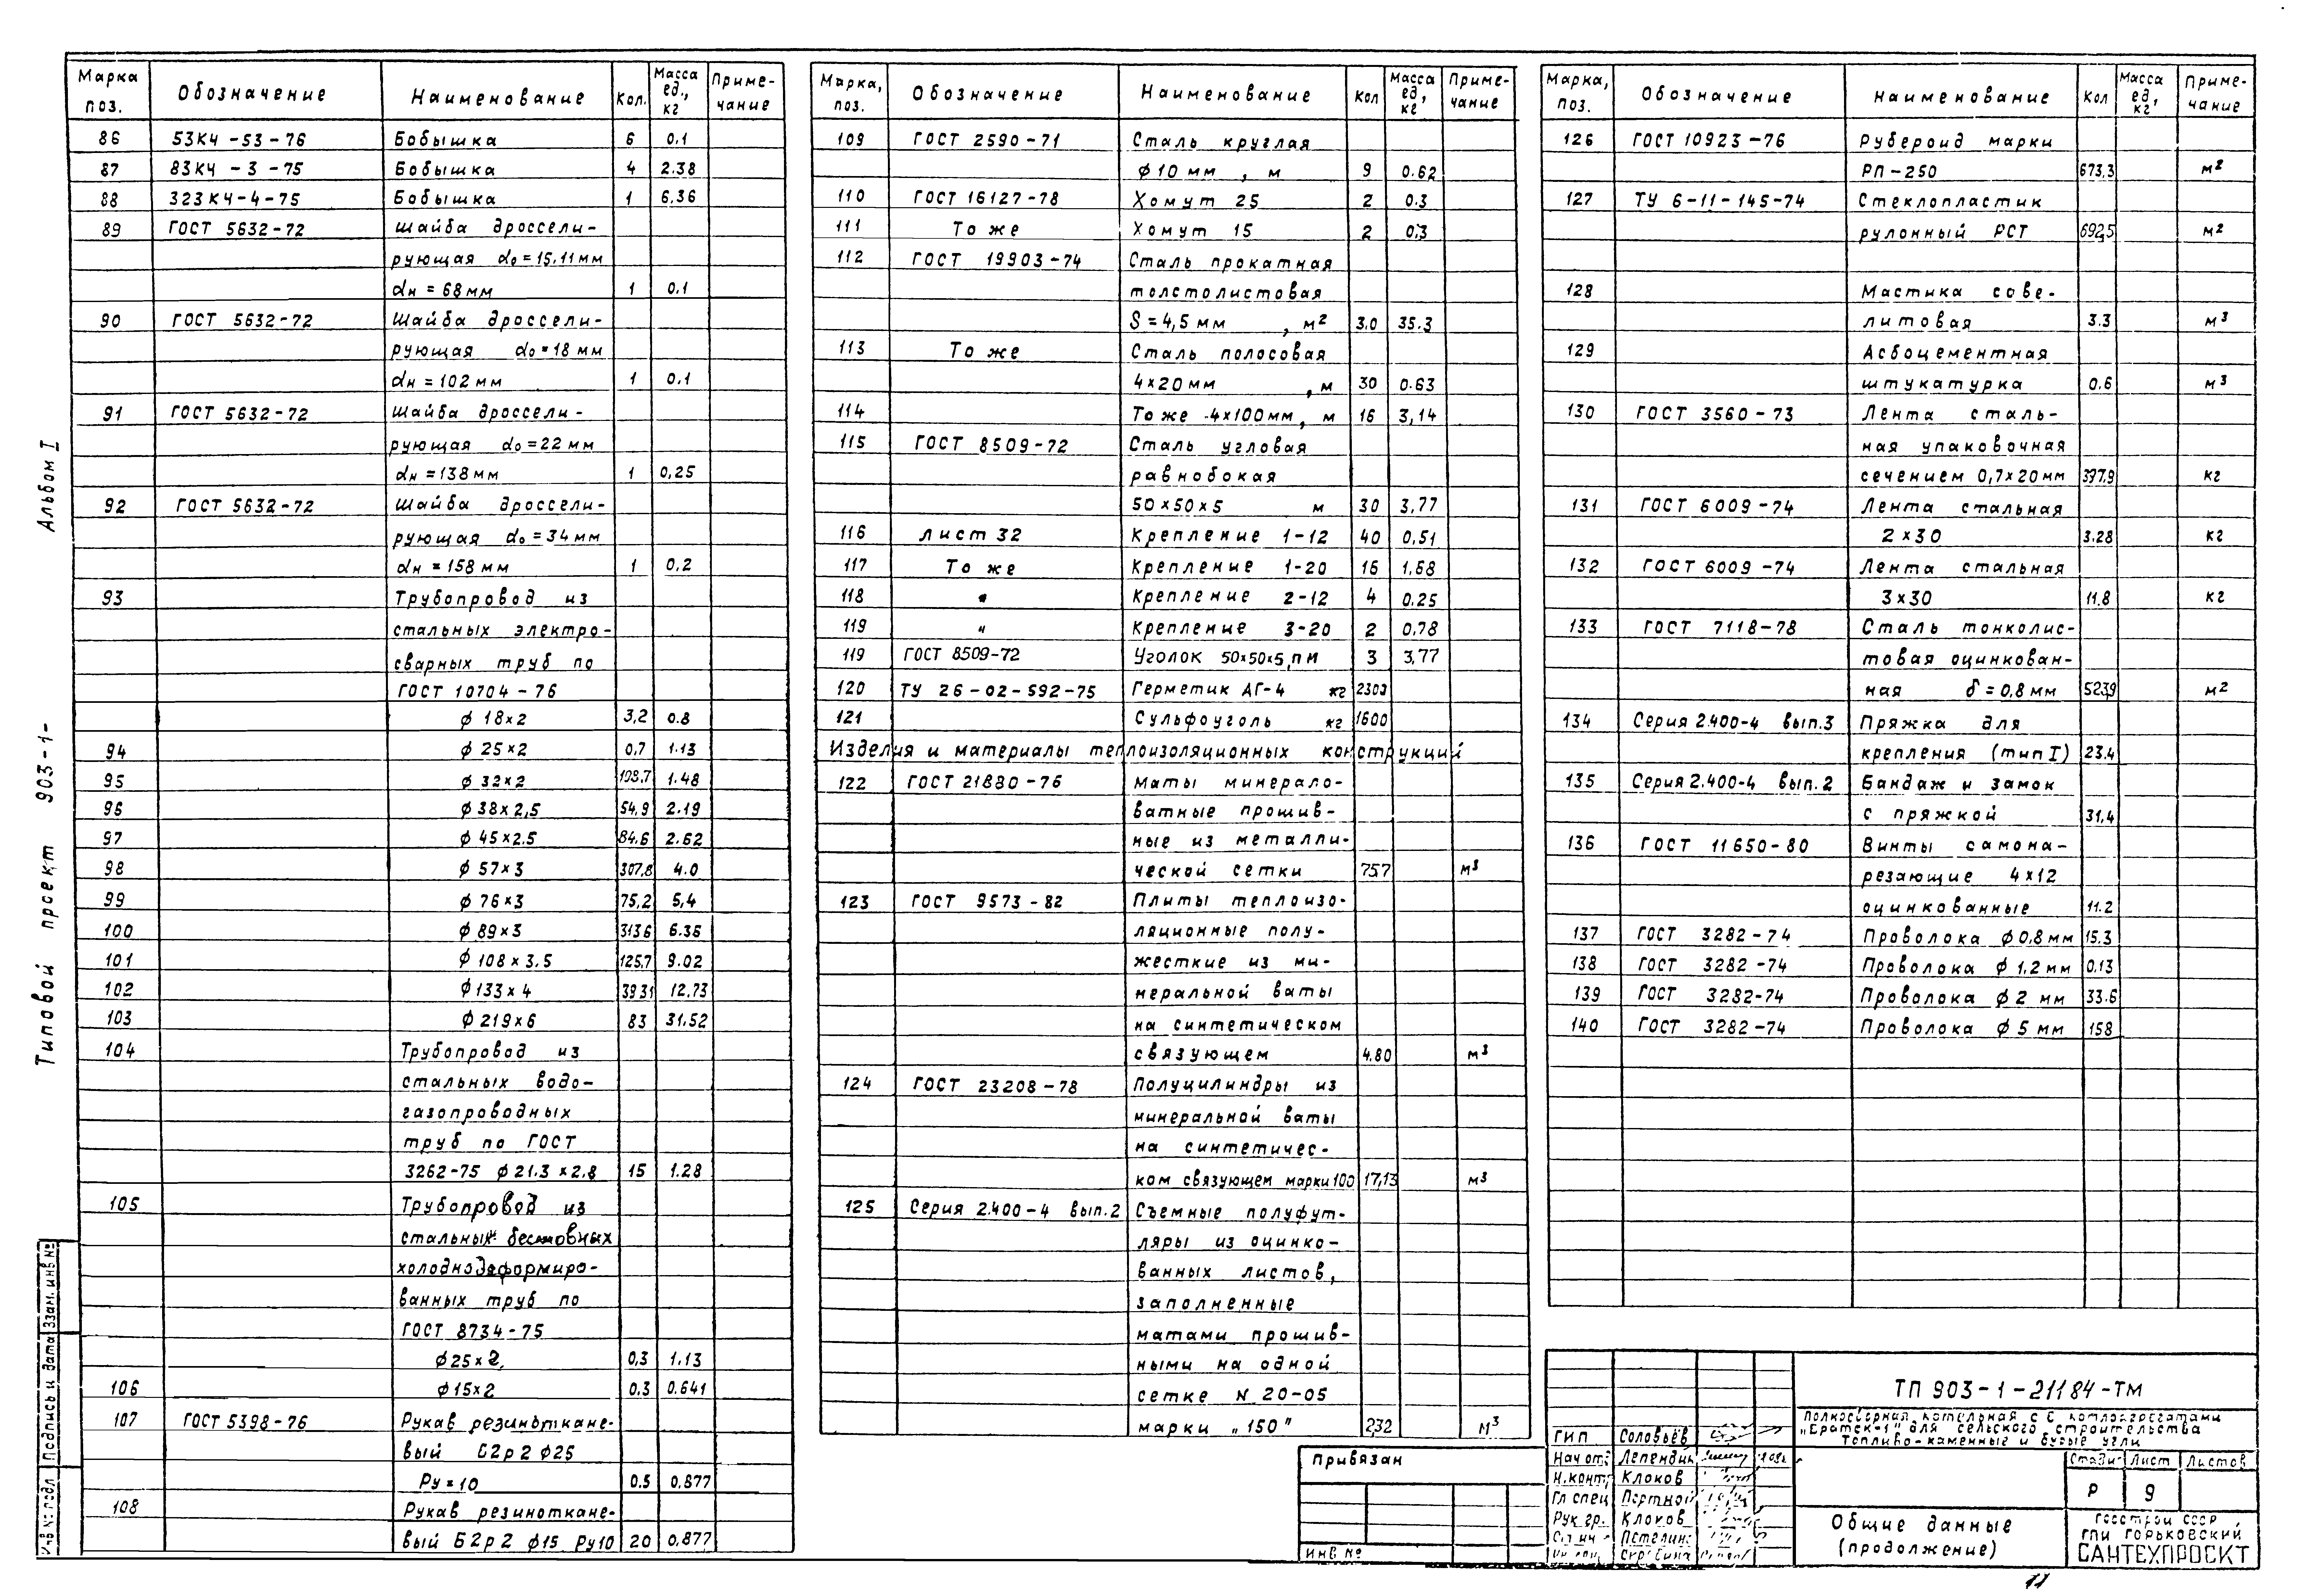 Альбом I
Типовой проект 903-1-
Марка поз. Обозначение Наименование Кол. Масса ед., кг Примечание
86 53КЧ-53-76 Бобышка 6 0.1
87 83КЧ-3-75 Бобышка 4 2.38
88 323КЧ-4-75 Бобышка 1 6,36
89 ГОСТ 5632-72 Шайба дроссели-
рующая dо=15.11мм
dн=68мм 1 0.1
90 ГОСТ 5632-72 Шайба дроссели-
рующая dо=18 мм
dн=102мм 1 0.1
91 ГОСТ 5632-72 Шайба дроссели-
рующая dо=22мм
dн=138мм 1 0,25
92 ГОСТ 5632-72 Шайба дроссели-
рующая dо=34мм
dн=158мм 1 0,2
93 Трубопровод из
стальных электро-
сварных труб по
ГОСТ 10704-76
ф 18×2 3,2 0.8
94 ф 25×2 0,7 1.13
95 ф 32×2 108,7 1.48
96 ф 38×2,5 54,9 2.19
97 ф 45×2.5 84.6 2.62
98 ф 57×3 307,8 4.0
99 ф 76×3 75,2 5,4
100 ф 89×3 313.6 6.36
101 ф 108×3.5 125,7 9.02
102 ф 133×4 39.31 12.73
103 ф 219×6 83 31.52
104 Трубопровод из
стальных водо-
газопроводных
труб по ГОСТ
3262-75 ф 21.3×2.8 15 1.28
105 Трубопровод из
стальных бесшовных
холоднодеформиро-
ванных труб по
ГОСТ 8734-75
ф25×2, 0,3 1.13
106 ф15×2 0.3 0.641
107 ГОСТ 5398-76 Рукав резиноткане-
вый Б2р2 ф25
Ру=10 0.5 0.877
108 Рукав резиноткане-
вый Б2р2 ф15 Ру10 20 0.877
Марка, поз. Обозначение Наименование Кол Масса ед, кг Примечание
109 ГОСТ 2590-71 Сталь круглая
ф10мм , м 9 0.62
110 ГОСТ 16127-78 Хомут 25 2 0.3
111 То же Хомут 15 2 0,3
112 ГОСТ 19903-74 Сталь прокатная
толстолистовая
S=4,5мм , м² 3.0 35.3
113 То же Сталь полосовая
4×20мм , м 30 0.63
114 То же -4×100мм, м 16 3,14
115 ГОСТ 8509-72 Сталь угловая
равнобокая
50×50×5 м 30 3,77
116 лист 32 Крепление 1-12 40 0,51
117 То же Крепление 1-20 16 1,68
118 " Крепление 2-12 4 0.25
119 " Крепление 3-20 2 0,78
119 ГОСТ 8509-72 Уголок 50×50×5, п м 3 3,77
120 ТУ 26-02-592-75 Герметик АГ-4 кг 2300
121 Сульфоуголь кг 1600
Изделия и материалы теплоизоляционных конструкций
122 ГОСТ 21880-76 Маты минерало-
ватные прошив-
ные из металли-
ческой сетки 75.7 м³
123 ГОСТ 9573-82 Плиты теплоизо-
ляционные полу-
жесткие из ми-
неральной ваты
на синтетическом
связующем 4.80 м³
124 ГОСТ 23208-78 Полуцилиндры из
минеральной ваты
на синтетичес-
ком связующем марки 100 17,13 м³
125 Серия 2.400-4 вып.2 Съемные полуфут-
ляры из оцинко-
ванных листов,
заполненные
матами прошив-
ными на одной
сетке N 20-05
марки „150" 2,32 м³
Марка, поз. Обозначение Наименование Кол Масса ед, кг Примечание
126 ГОСТ 10923-76 Рубероид марки
РП-250 673,3 м²
127 ТУ 6-11-145-74 Стеклопластик
рулонный РСТ 692,5 м²
128 Мастика сове-
литовая 3.3 м³
129 Асбоцементная
штукатурка 0.6 м³
130 ГОСТ 3560-73 Лента сталь-
ная упаковочная
сечением 0,7×20мм 397.9 кг
131 ГОСТ 6009-74 Лента стальная
2×30 3.28 кг
132 ГОСТ 6009-74 Лента стальная
3×30 11.8 кг
133 ГОСТ 7118-78 Сталь тонколис-
товая оцинкован-
ная δ=0,8мм 523,9 м²
134 Серия 2.400-4 вып.3 Пряжка для
крепления (тип I) 23.4
135 Серия 2.400-4 вып.2 Бандаж и замок
с пряжкой 31,4
136 ГОСТ 11650-80 Винты самона-
резающие 4×12
оцинкованные 11.2
137 ГОСТ 3282-74 Проволока ф0,8мм 15.3
138 ГОСТ 3282-74 Проволока ф 1,2мм 0,13
139 ГОСТ 3282-74 Проволока ф 2 мм 33.6
140 ГОСТ 3282-74 Проволока ф 5 мм 158
Привязан
Инв №
ГИП Соловьёв
Нач отд Лепендин
Н.контр Клоков
Гл спец Портной
Рук гр. Клоков
ТП 903-1-211 84-ТМ
Полносборная котельная с 6 котлоагрегатами
„Братск-1" для сельского строительства
Топливо-каменные и бурые угли
Стадия Лист Листов
Р 9
Общие данные
(продолжение)
Госстрой СССР
ГПИ ГОРЬКОВСКИЙ
САНТЕХПРОЕКТ
Инв № подл Подпись и дата Взам. инв №
11